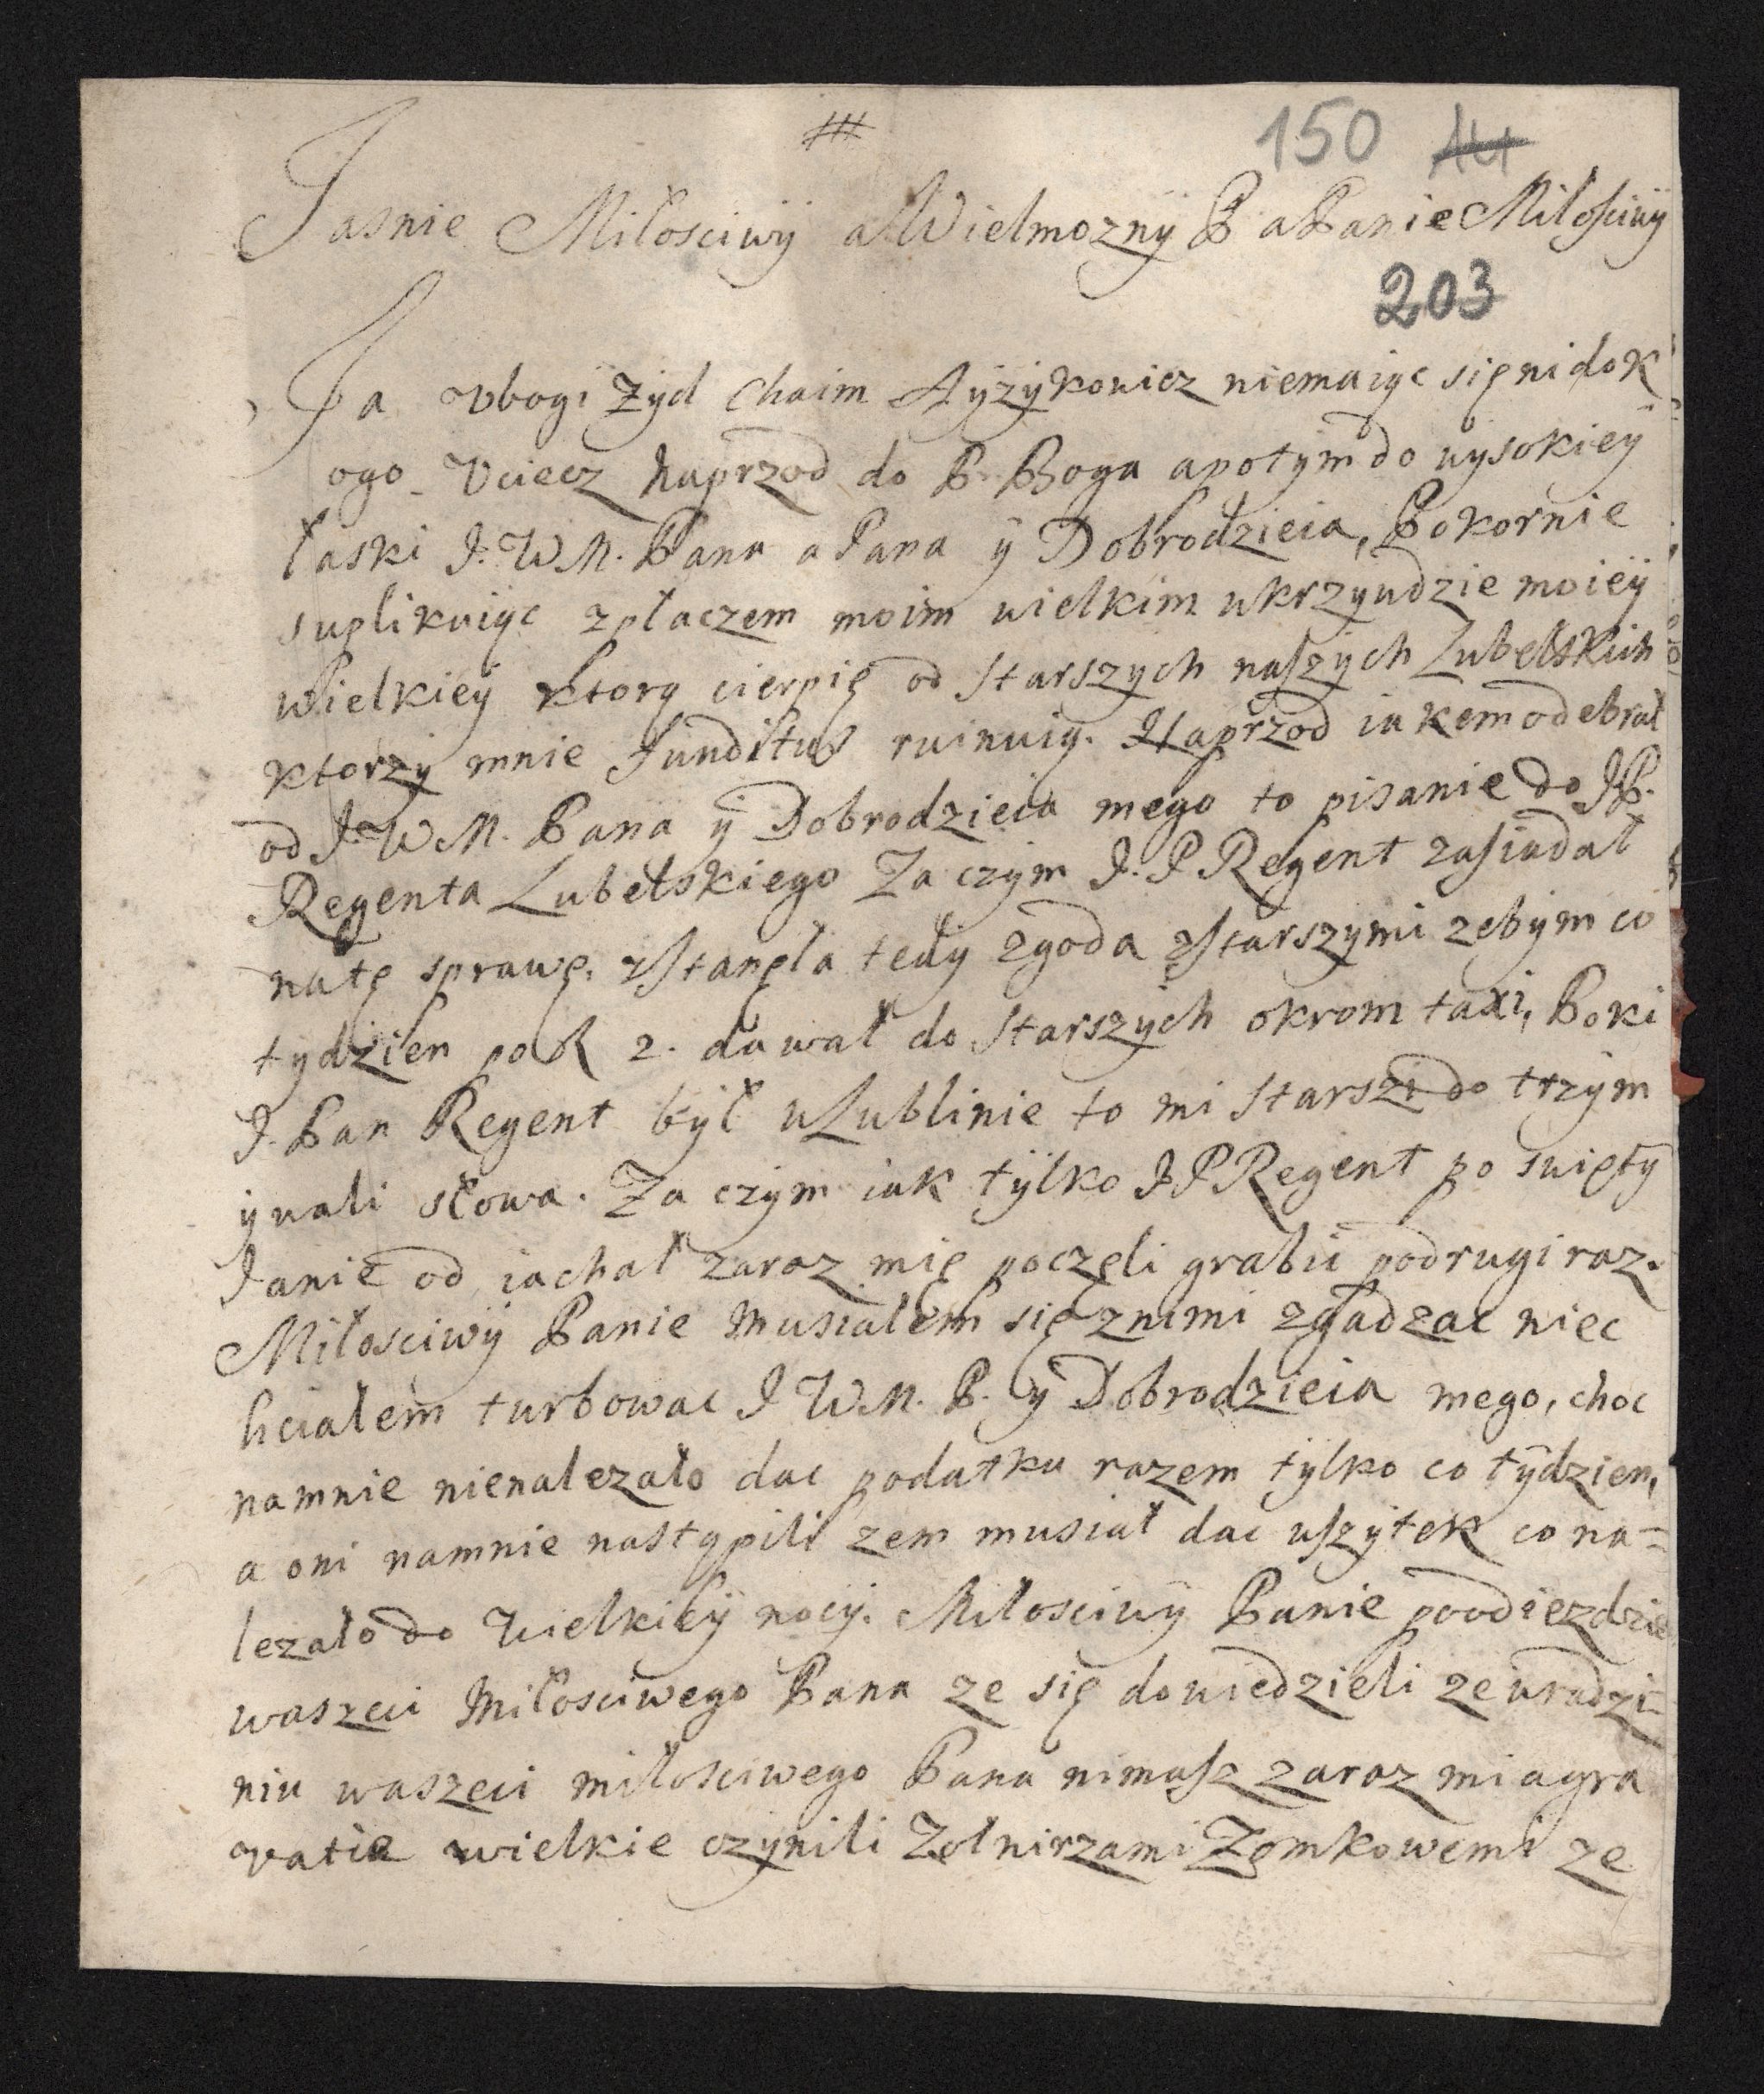 150
Jasnie Miłosciwÿ a Wielmoznÿ P a Panie Miłosciwy
203
Ja Vbogi Zÿd Chaim Ayzÿkowicz niemaiąc się ni dok
ogo Vciecz Naprzod do P. Boga apotÿm do wysokieÿ
łaski J. W M. Pana a Pana ÿ Dobrodzieia, Pokornie
suplikuiąc zpłaczem moim wielkim wkrzywdzie moieÿ
Wielkieÿ ktorą cierpię od starszych naszÿch Lubelskich
ktorzÿ mnie funditus ruinuią. Naprzod iakem odebrał
od J. W M. Pana ÿ Dobrodzieia mego to pisanie do J P.
Regenta Lubelskiego Za czÿm J. P Regent zasiadał
natę sprawę, Zstanęła tedÿ zgoda zstarszymi zebÿm co
tydzien po R 2. dawał do starszÿch okrom taxi, Poki
J. Pan Regent bÿł wLublinie to mi starszi do trzÿm
ÿwali słowa. Za czÿm iak tÿlko J P Regent po swiętÿ
Janie od iachał zaraz mię poczęli grabić podrugi raz.
Miłosciwÿ Panie Musiałem się znimi zgadzac niec
hciałem turbowac J W M. P. ÿ Dobrodzieia mego, choc
namnie nienalezało dac podatku razem tÿlko co tÿdzien,
a oni namnie nastąpili zem musiał dac wszÿtek co na=
lezało do Wielkieÿ nocÿ. Miłosciwÿ Panie poodiezdzie
waszeci Miłosciwego Pana ze się dowiedzieli ze wradzi=
niu waszeci miłosciwego Pana nimasz zaraz mi agra
vatie wielkie czÿnili Zołnirzami Zomkowemi ze